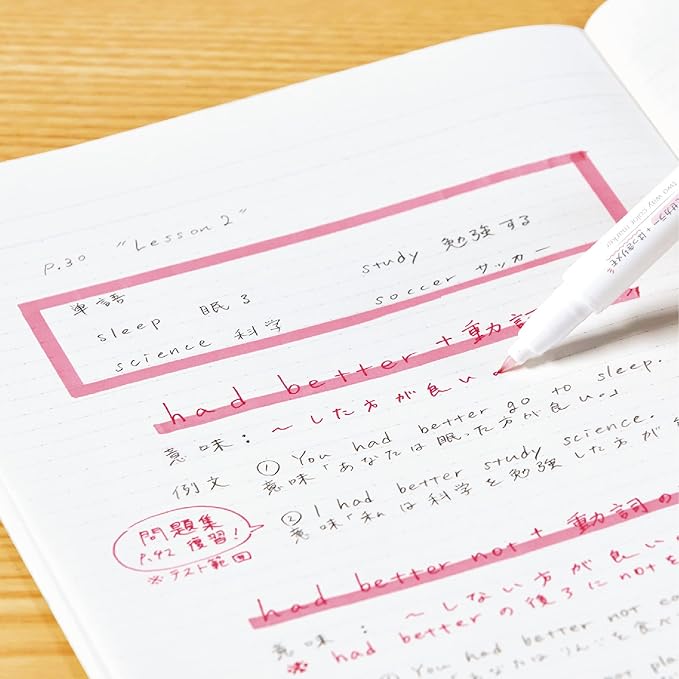 P.30 "Lesson 2"
単語
study 勉強する
sleep 眠る
soccer サッカー
science 科学
had better + 動詞
意味：〜した方が良い。
例文 ① You had better go to sleep.
意味「あなたは眠った方が良い。」
② I had better study science.
意味「私は科学を勉強した方が
問題集
P.42 復習！
※テスト範囲
had better not + 動詞の
意味：〜しない方が良い
※ had betterの後ろにnotを
① You had better not ea
意味「あなたはりんごを食べ
not pla
two way color marker